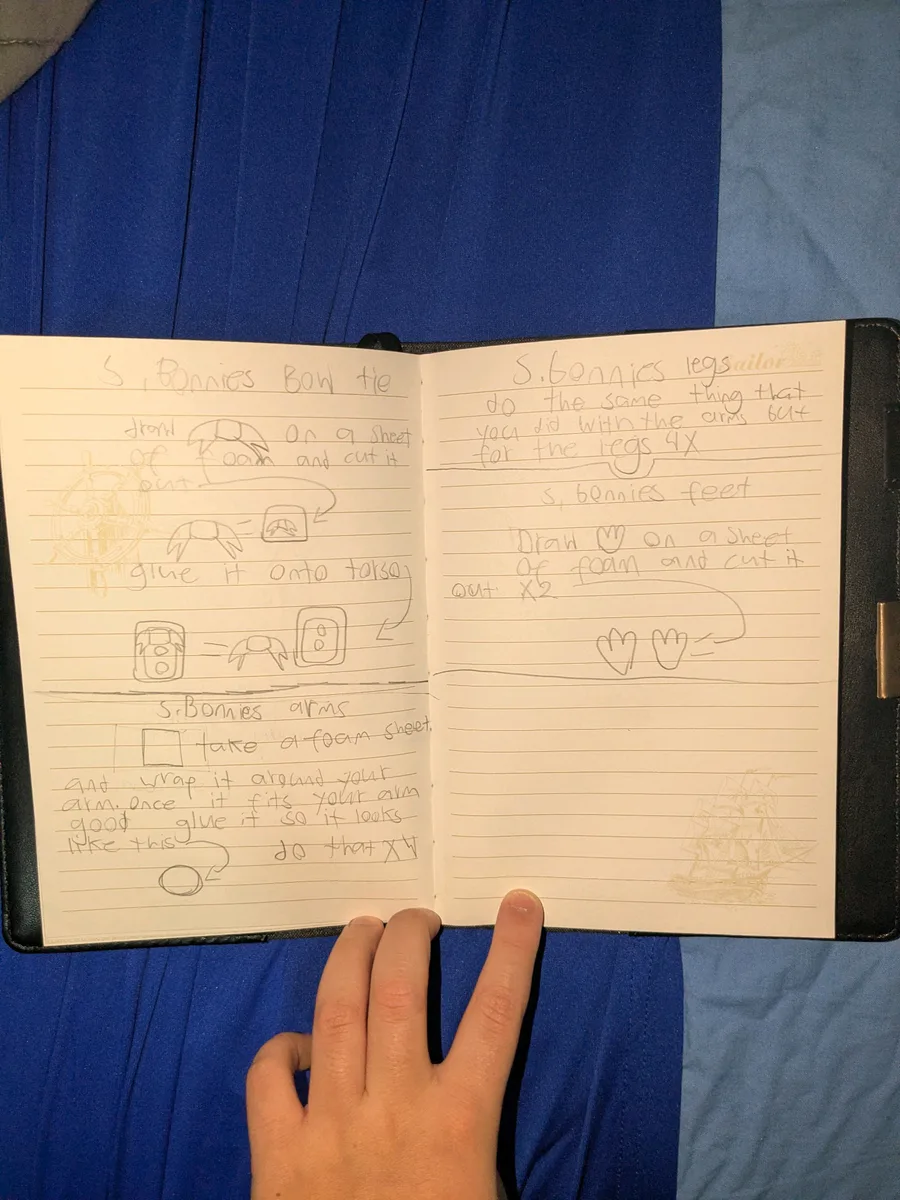 S, Bonnies Bow tie
draw on a sheet
of foam and cut it
out
glue it onto torso
S. Bonnies arms
take a foam sheet.
and wrap it around your
arm. once it fits your arm
good glue it so it looks
like this
do that X4
S. bonnies legs
ailor
do the same thing that
you did with the arms but
for the legs 4X
S, bonnies feet
Draw on a sheet
of foam and cut it
out X2